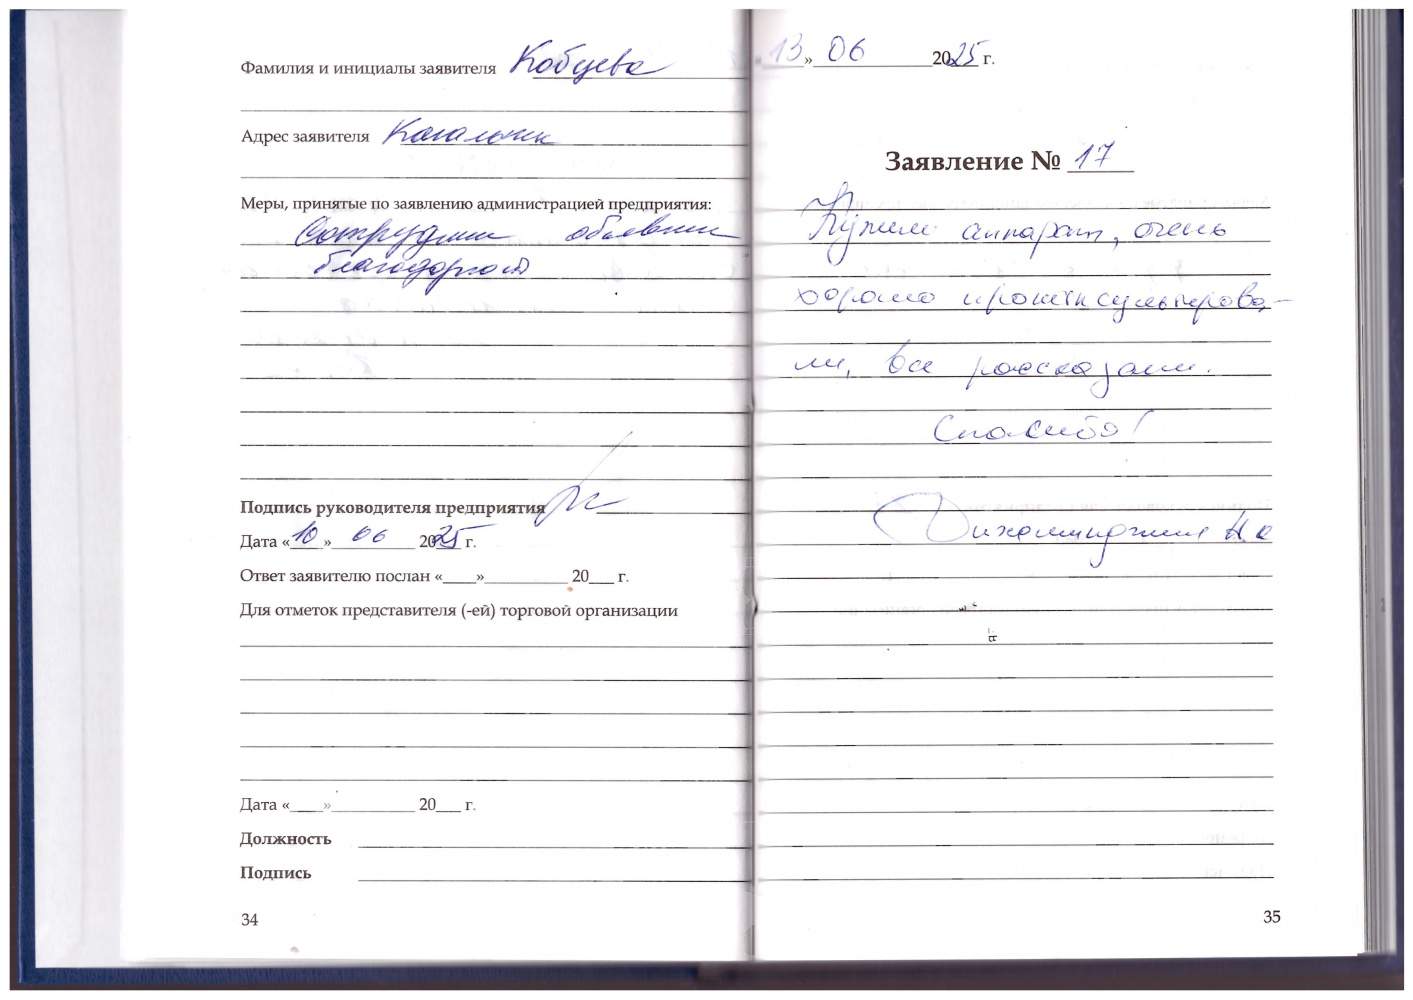 Фамилия и инициалы заявителя Кобцева
Адрес заявителя Кагальник
Меры, принятые по заявлению администрацией предприятия:
Сотруднику объявили
благодарность
Подпись руководителя предприятия
Дата «10» 06 2025 г.
Ответ заявителю послан «___»__________ 20___ г.
Для отметок представителя (-ей) торговой организации
Дата «___»__________ 20___ г.
Должность
Подпись
34
13» 06 2025 г.
Заявление № 17
Купили аппарат, очень
хорошо проконсультирова-
ли, все рассказали.
Спасибо!
35